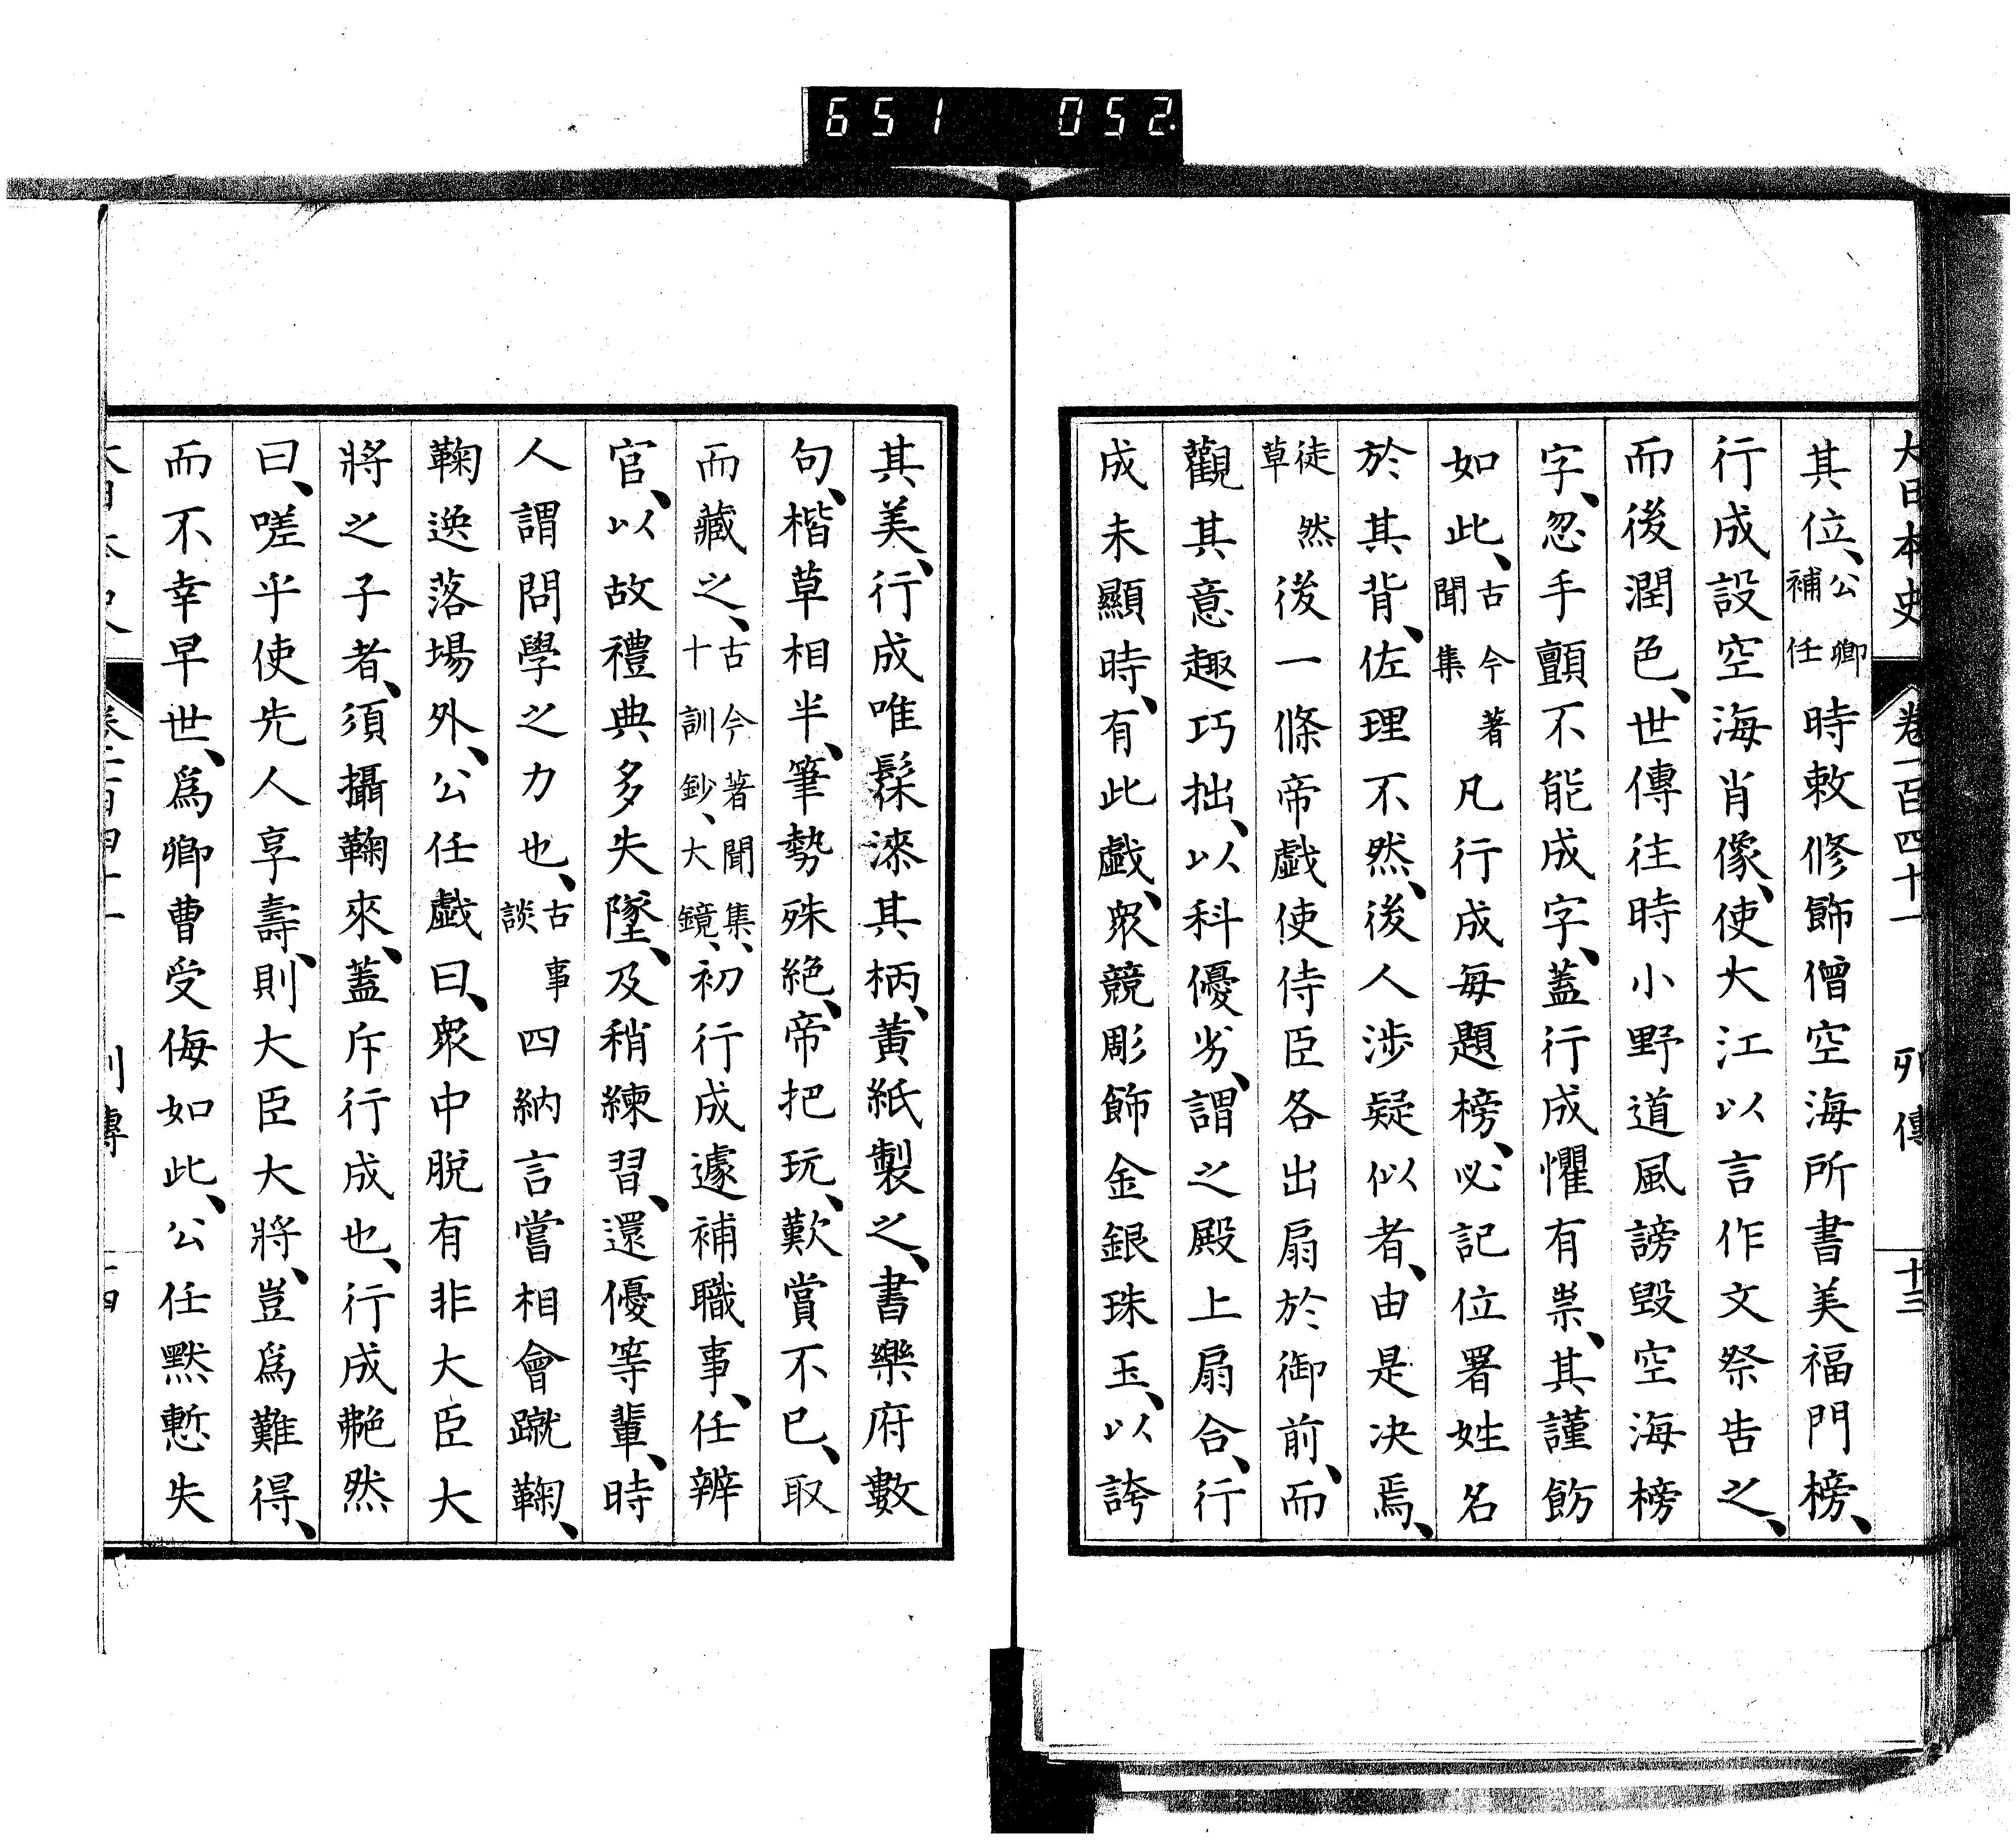 651 052
大日本史 卷一百四十一 列傳 十三
其位、公卿補任時敕修飾僧空海所書美福門榜、
行成設空海肖像、使大江以言作文祭告之、
而後潤色、世傳往時小野道風謗毀空海榜
字、忽手顫不能成字、蓋行成懼有祟、其謹飭
如此、古今著聞集凡行成每題榜、必記位署姓名
於其背、佐理不然、後人涉疑似者、由是決焉、
徒然草後一條帝戲使侍臣各出扇於御前、而
觀其意趣巧拙、以科優劣、謂之殿上扇合、行
成未顯時、有此戲、衆競彫飾金銀珠玉、以誇
其美、行成唯髹漆其柄、黃紙製之、書樂府數
句、楷草相半、筆勢殊絕、帝把玩、歎賞不已、取
而藏之、古今著聞集、十訓鈔、大鏡、初行成遽補職事、任辨
官、以故禮典多失墜、及稍練習、還優等輩、時
人謂問學之力也、古事談四納言嘗相會蹴鞠、
鞠逸落場外、公任戲曰、衆中脫有非大臣大
將之子者、須攝鞠來、蓋斥行成也、行成艴然
曰、嗟乎使先人享壽、則大臣大將、豈爲難得、
而不幸早世、爲卿曹受侮如此、公任默慙失